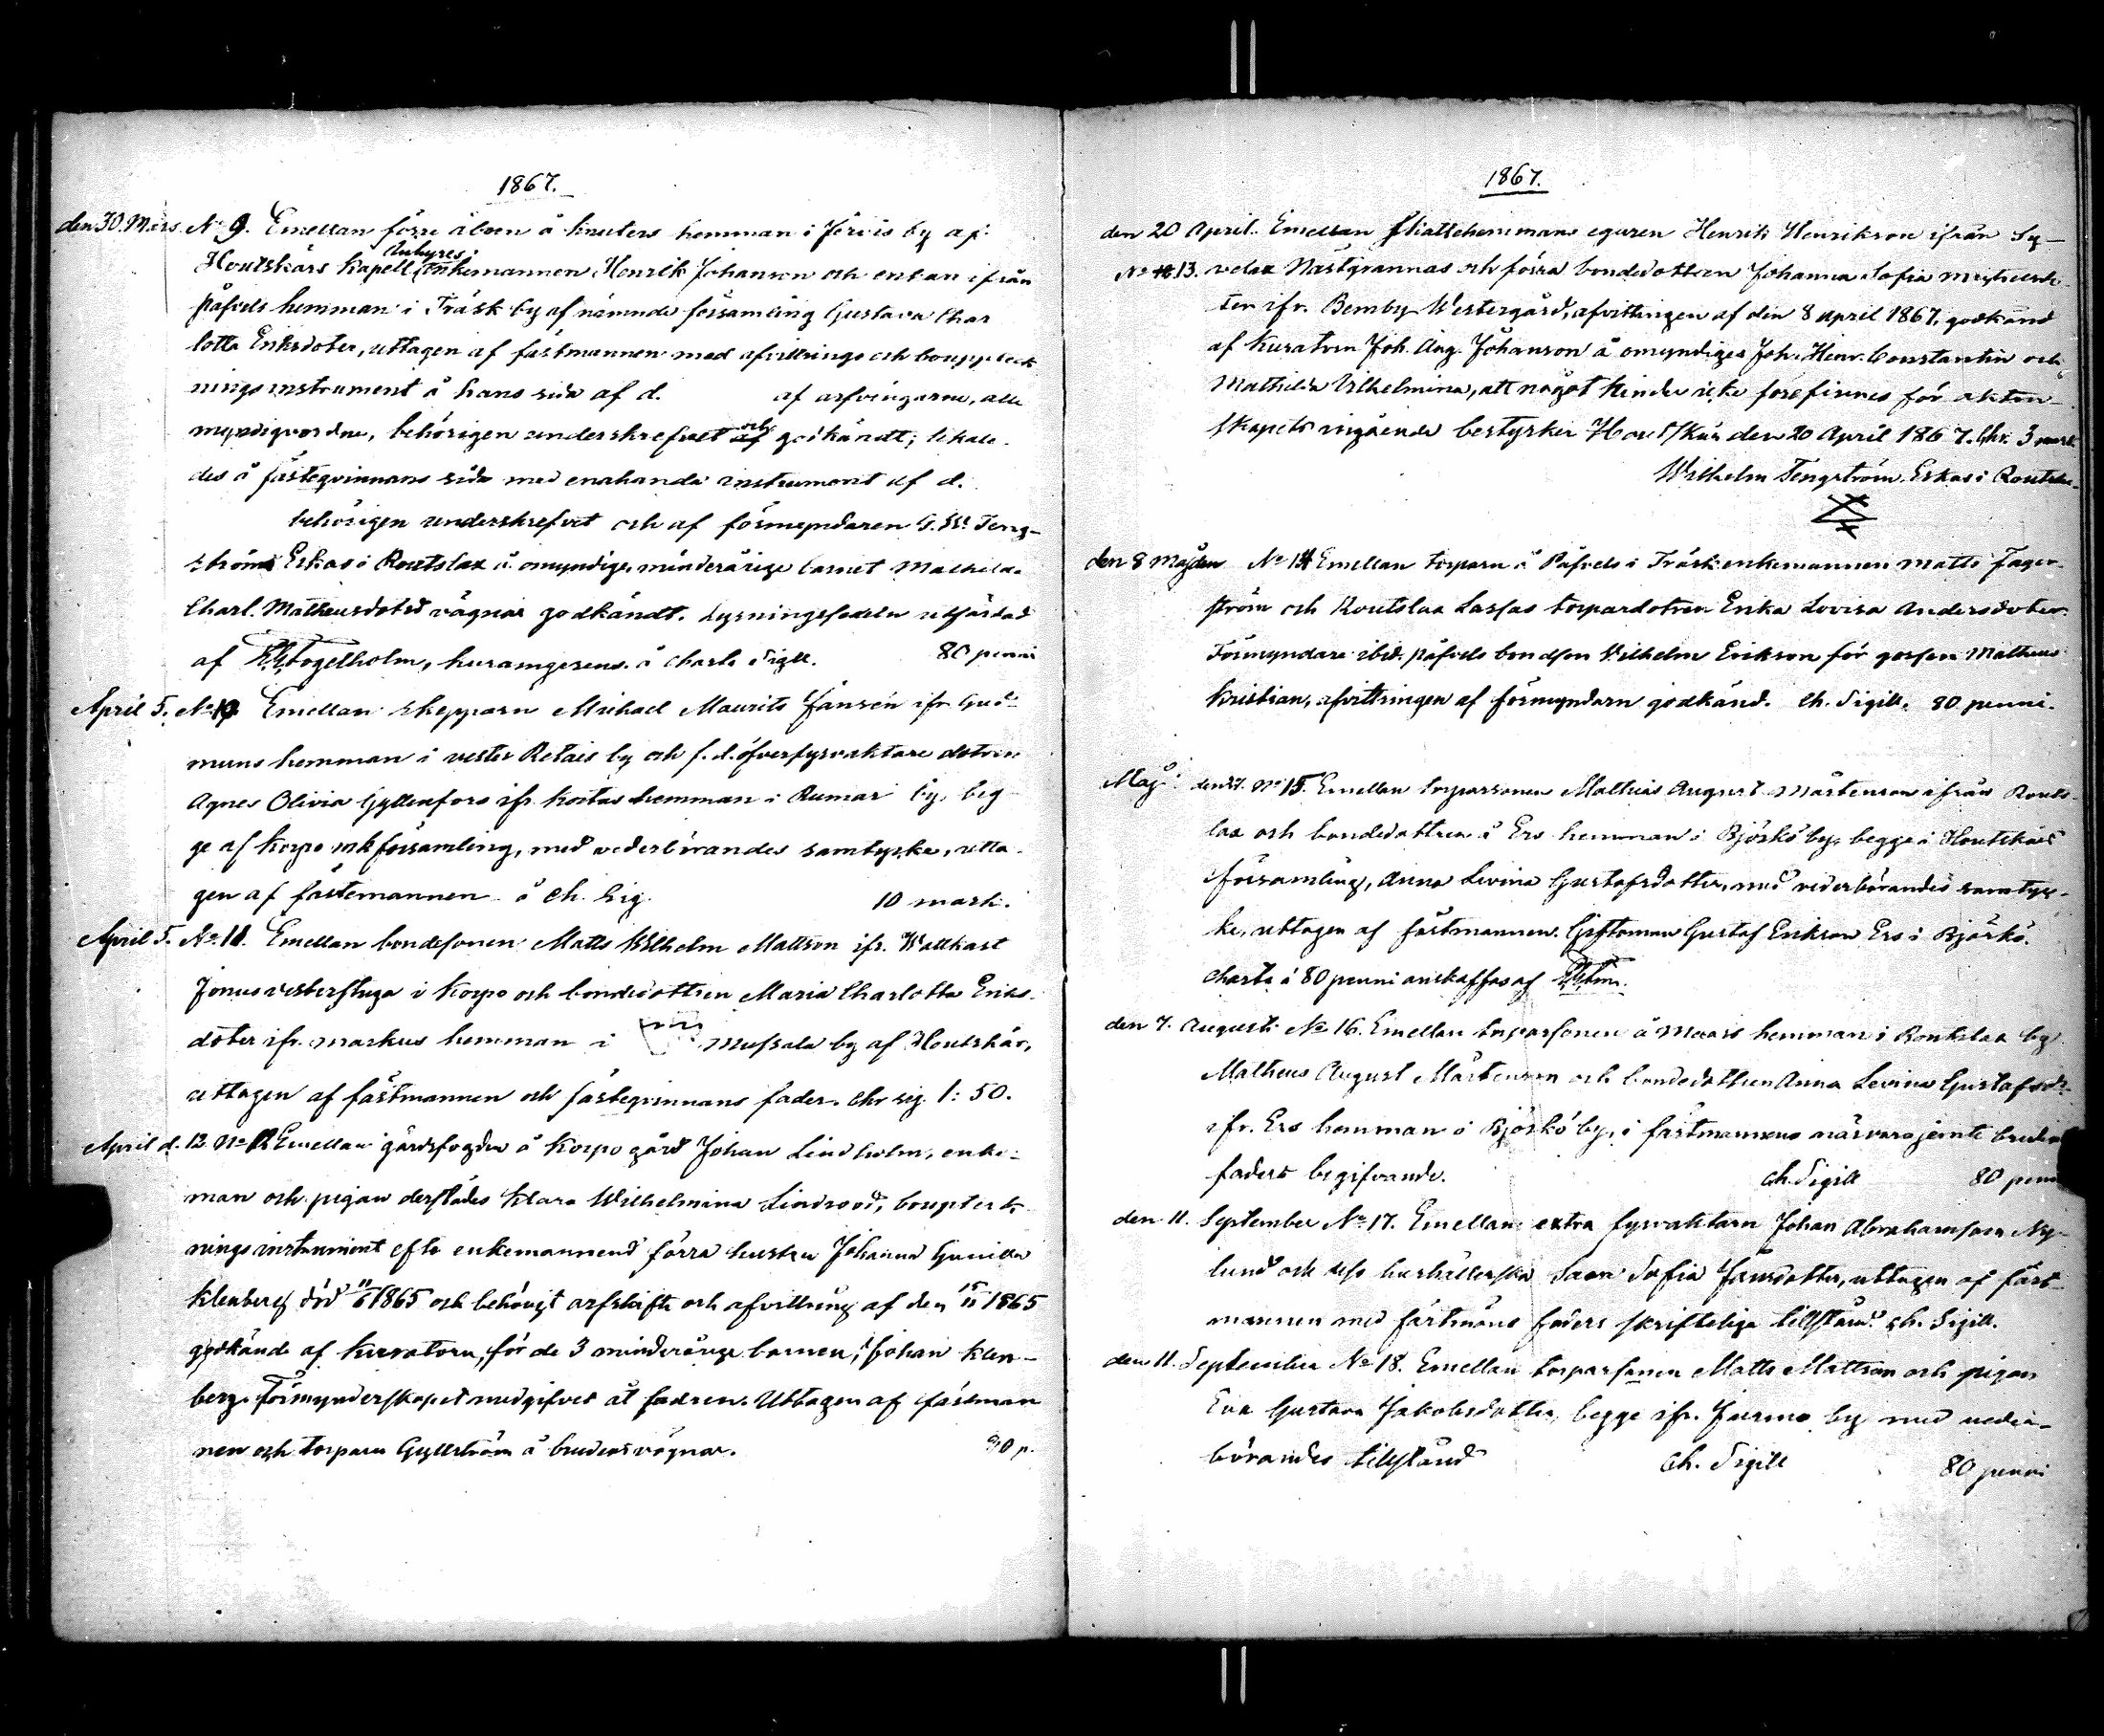 1867.
den 30. Mars. No 9. Emellan förre åboen å Knuters hemman i Jervis by af
Anbyres
Houtskärs Kapell, enkemannen Henrik Johanson och enkan ifrån
påfvels hemman i Träsk by af nämnde församling Gustava Char
lotta Eriksdoter, uttagen af fästmannen med afvittrings och bouppteck
nings instrument å hans sida af d. af arfvingarne, alle
myndigvordne, behörigen underskrefvet af och godkändt; likale-
des å fästeqvinnans sida med enahanda instrument af d.
behörigen underskrefvet och af förmyndaren G. W. Teng-
ström Eskas i Routslax å omyndiga, minderårige barnet Mathilda
Charl. Matheusdoters vägnar godkändt. Lysningssedeln utfärdad
af Fogelholm, kuramgerens. å charta Sigill. 80 penni
April 5. No 10 Emellan skepparn Mickael Maurits Jansén ifr. Gud-
muns hemman i vester Retais by och f. d. öfverfyrvaktare dotren
Agnes Olivia Gyllenfors ifr. Kostas hemman i Rumar by, beg
ge af Korpo mkförsamling, med vederbörandes samtycke, utta-
gen af fästemannen å Ch. Sig. 10 mark.
April 5. No 11. Emellan bondesonen Matts Wilhelm Mattson ifr. Wattkast
Jönus vesterstuga i Korpo och bondedottren Maria Charlotta Eriks-
doter ifr. Markus hemman i Mussala by af Houtskär,
uttagen af fästmannen och fästeqvinnans fader. Ch sig. 1: 50.
April d. 12. No 12 Emellan gårdsfogden å Korpo gård Johan Lindholm, enke-
man och pigan derstädes Klara Wilhelmina Lindroos, bouppteck-
nings instrument efter enkemannens förra hustru Johanna Gunilla
Klenberg död 11/6 1865 och behörigt arfskifte och afvittring af den 15/11 1865
godkände af Kuratorn, för de 3 minderårige barnen, Johan Klen-
berg. Förmynderskapet medgifvet åt fadren. Uttagen af fästman
nen och torparn Gyllström å brudens vägnar. 80 p.
1867.
den 20 April. Emellan Skattehemmans egaren Henrik Henrikson ifrån Sy-
No 13. velax Nästgrannas och förra bondedottren Johanna Sofia Michelsdo
ter ifr. Bemby Westergård, afvittringen af den 8 april 1867, godkänd
af Kuratorn Joh. Aug. Johanson å omyndiges Joh. Henr. Constantin och
Mathilda Vilhelmina, att något hinder icke förefinnes för äkten-
skapets ingående bestyrker Houtskär den 20 April 1867. Chr. 3 mark
Wilhelm Tengström Eskas i Routslax
den 8 Maj den No 14 Emellan torparn å Påfvels i Träsk enkemannen Matts Fager-
ström och Routslax Lassas torpardotren Erika Lovisa Andersdoter.
Förmyndare ibid. påfvels bondson Vilhelm Erikson för gossen Matheus
Kristian, afvittringen af förmyndarn godkänd. Ch. Sigill. 80 penni.
Maj den 17. No 15. Emellan torparsonen Mathias August Mårtenson ifrån Routs-
lax och bondedottren å Ers hemman i Björkö by, begge i Houtskärs
församling, Anna Levina Gustafsdotter, med vederbörandes samtyc-
ke, uttagen af fästmannen. Giftoman Gustaf Erikson Ers i Björkö.
Charta á 80 penni anskaffas af
den 7. Augusti No 16. Emellan torparsonen å Maars hemman i Routslax by
Matheus August Mårtenson och bondedottren Anna Levina Gustafsdr.
ifr. Ers hemman i Björkö by, i fästmannens närvaro jemte brudens
faders begifvande. Ch. Sigill 80 penni
den 11. September No 17. Emellan extra fyrvaktarn Johan Abrahamsson Ny-
lund och dess hushållerska Sara Sofia Jansdotter, uttagen af fäst-
mannen med fästmöns faders skriftliga tillstånd. Ch. Sigill.
den 11. September No 18. Emellan torparsonen Matts Mattson och pigan
Eva Gustava Jakobsdotter, begge ifr. Jurmo by med veder-
börandes tillstånd Ch. Sigill 80 penni